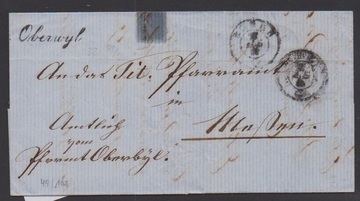 Oberwyl
An das Tit. Pfarramt
in
Messen.
Amtlich
vom
Pframt Oberwyl.